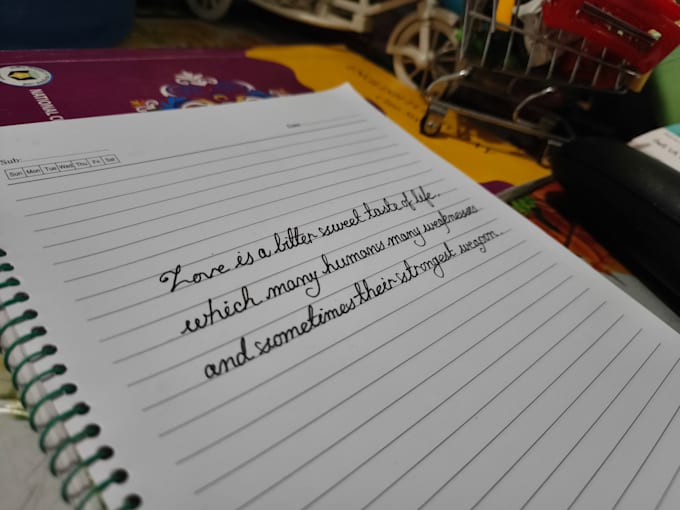 NATIONAL
Sub:
Date
Sun Mon Tue Wed Thu Fri Sat
Love is a bitter sweet taste of life.
which many humans many weaknesses
and sometimes their strongest weapon.